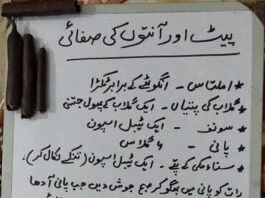 پیٹ اور آنتوں کی صفائی
* املتاس - انگوٹھے کے برابر ٹکڑا
* گلاب کی پتیاں - ایک گلاب کے پھول جتنی
* سونف - ایک ٹیبل اسپون
* پانی - 4 گلاس
* سناء مکی کے پتے - ایک ٹیبل اسپون (تنکے نکال کر).
رات کو پانی میں بھگو کر صبح جوش دیں جب پانی آدھا